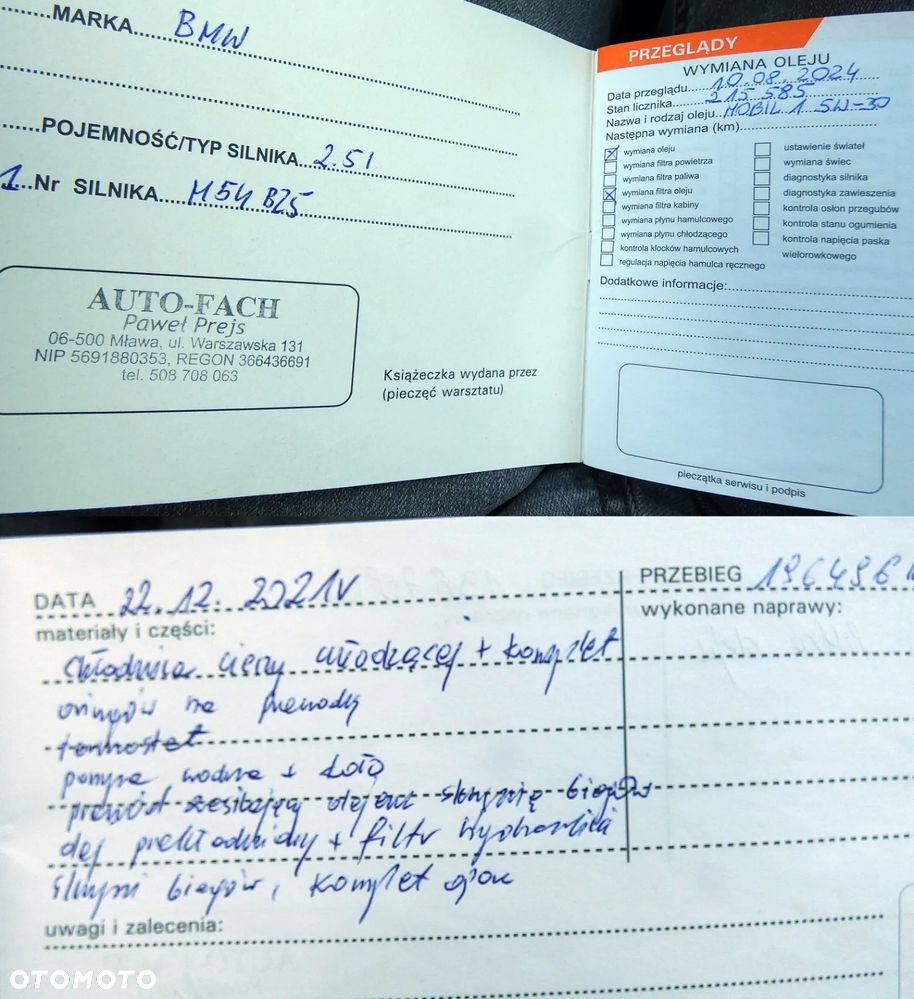 MARKA BMW
POJEMNOŚĆ/TYP SILNIKA 2.5 i
1 Nr SILNIKA M54 B25
AUTO-FACH
Paweł Prejs
06-500 Mława, ul. Warszawska 131
NIP 5691880353, REGON 366436691
tel. 508 708 063
Książeczka wydana przez
(pieczęć warsztatu)
PRZEGLĄDY
WYMIANA OLEJU
Data przeglądu 10.08.2024
Stan licznika 215 585
Nazwa i rodzaj oleju MOBIL 1 5W-30
Następna wymiana (km)
wymiana oleju
wymiana filtra powietrza
wymiana filtra paliwa
wymiana filtra oleju
wymiana filtra kabiny
wymiana płynu hamulcowego
wymiana płynu chłodzącego
kontrola klocków hamulcowych
regulacja napięcia hamulca ręcznego
ustawienie świateł
wymiana świec
diagnostyka silnika
diagnostyka zawieszenia
kontrola osłon przegubów
kontrola stanu ogumienia
kontrola napięcia paska
wielorowkowego
Dodatkowe informacje:
pieczątka serwisu i podpis
DATA 22.12.2021r
PRZEBIEG 196496
materiały i części:
wykonane naprawy:
Chłodnica cieczy chłodzącej + komplet
oringów na przewody
termostat
pompa wodna + koło
przewód zasilający olejem skrzynię biegów
olej przekładniowy + filtr hydraulika
skrzyni biegów, komplet
uwagi i zalecenia:
OTOMOTO